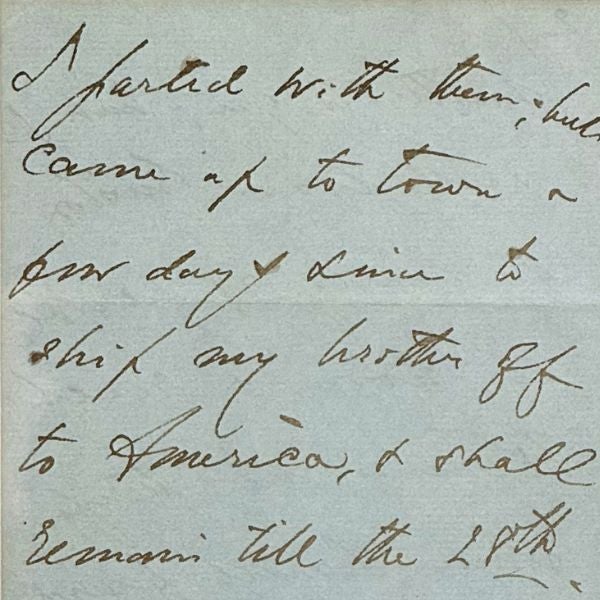 I parted with them; but
came up to town a
few days since to
ship my brother off
to America, & shall
remain till the 28th.